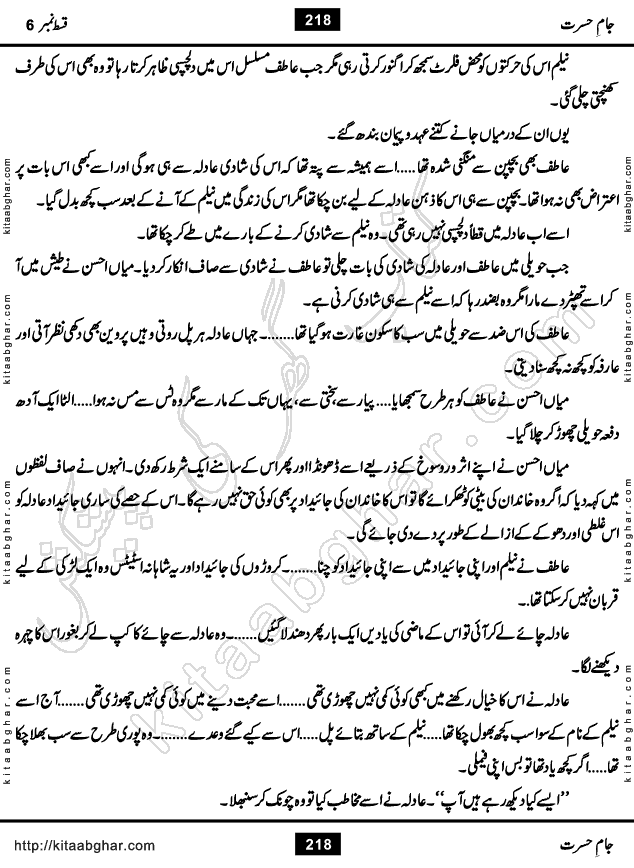 جامِ حسرت 218 قسط نمبر 6
نیلم اس کی حرکتوں کو محض فلرٹ سمجھ کر اگنور کرتی رہی مگر جب عاطف مسلسل اس میں دلچسپی ظاہر کرتا رہا تو وہ بھی اس کی طرف
کھنچتی چلی گئی۔
یوں ان کے درمیاں جانے کتنے عہد و پیمان بندھ گئے۔
عاطف بھی بچپن سے منگنی شدہ تھا.....اسے ہمیشہ سے پتہ تھا کہ اس کی شادی عادلہ سے ہی ہوگی اور اسے کبھی اس بات پر
اعتراض بھی نہ ہوا تھا۔ بچپن سے ہی اس کا ذہن عادلہ کے لیے بن چکا تھا مگر اس کی زندگی میں نیلم کے آنے کے بعد سب کچھ بدل گیا۔
اسے اب عادلہ میں قطعاً دلچسپی نہیں رہی تھی۔ وہ نیلم سے شادی کرنے کے بارے میں طے کر چکا تھا۔
جب حویلی میں عاطف اور عادلہ کی شادی کی بات چلی تو عاطف نے شادی سے صاف انکار کر دیا۔ میاں احسن نے طیش میں آ
کر اسے تھپڑ دے مارا مگر وہ بضد رہا کہ اسے نیلم سے ہی شادی کرنی ہے۔
عاطف کی اس ضد سے حویلی میں سب کا سکون غارت ہو گیا تھا.......۔ جہاں عادلہ ہر پل روتی وہیں پروین بھی دکھی نظر آتی اور
عارفہ کو کچھ نہ کچھ سنا دیتی۔
میاں احسن نے عاطف کو ہر طرح سمجھایا.....پیار سے، سختی سے، یہاں تک کے مار سے مگر وہ ٹس سے مس نہ ہوا.....الٹا ایک آدھ
دفعہ حویلی چھوڑ کر چلا گیا۔
میاں احسن نے اپنے اثر و رسوخ کے ذریعے اسے ڈھونڈا اور پھر اس کے سامنے ایک شرط رکھ دی۔ انہوں نے صاف لفظوں
میں کہہ دیا کہ اگر وہ خاندان کی بیٹی کو ٹھکرائے گا تو اس کا خاندان کی جائیداد پر بھی کوئی حق نہیں رہے گا۔ اس کے حصے کی ساری جائیداد عادلہ کو
اس غلطی اور دھوکے کے ازالے کے طور پر دے دی جائے گی۔
عاطف نے نیلم اور اپنی جائیداد میں سے اپنی جائیداد کو چنا........۔ کروڑوں کی جائیداد اور یہ شاہانہ اسٹیٹس وہ ایک لڑکی کے لیے
قربان نہیں کر سکتا تھا۔۔
عادلہ چائے لے کر آئی تو اس کے ماضی کی یادیں ایک بار پھر دھندلا گئیں.......۔ وہ عادلہ سے چائے کا کپ لے کر بغور اس کا چہرہ
دیکھنے لگا۔
عادلہ نے اس کا خیال رکھنے میں کبھی کوئی کمی نہیں چھوڑی تھی.......اسے محبت دینے میں کوئی کمی نہیں چھوڑی تھی.......آج اسے
نیلم کے نام کے سوا سب کچھ بھول چکا تھا.....نیلم کے ساتھ بتائے پل.....اس سے کیے گئے وعدے.......۔ وہ پوری طرح سے سب بھلا چکا
تھا.....اگر کچھ یاد تھا تو بس اپنی فیملی۔
”ایسے کیا دیکھ رہے ہیں آپ“۔ عادلہ نے اسے مخاطب کیا تو وہ چونک کر سنبھلا۔
جامِ حسرت 218 http://kitaabghar.com
kitaabghar.com kitaabghar.com kitaabghar.com kitaabghar.com
kitaabghar.com kitaabghar.com kitaabghar.com kitaabghar.com
کتاب گھر کی پیشکش
kitaabghar.com